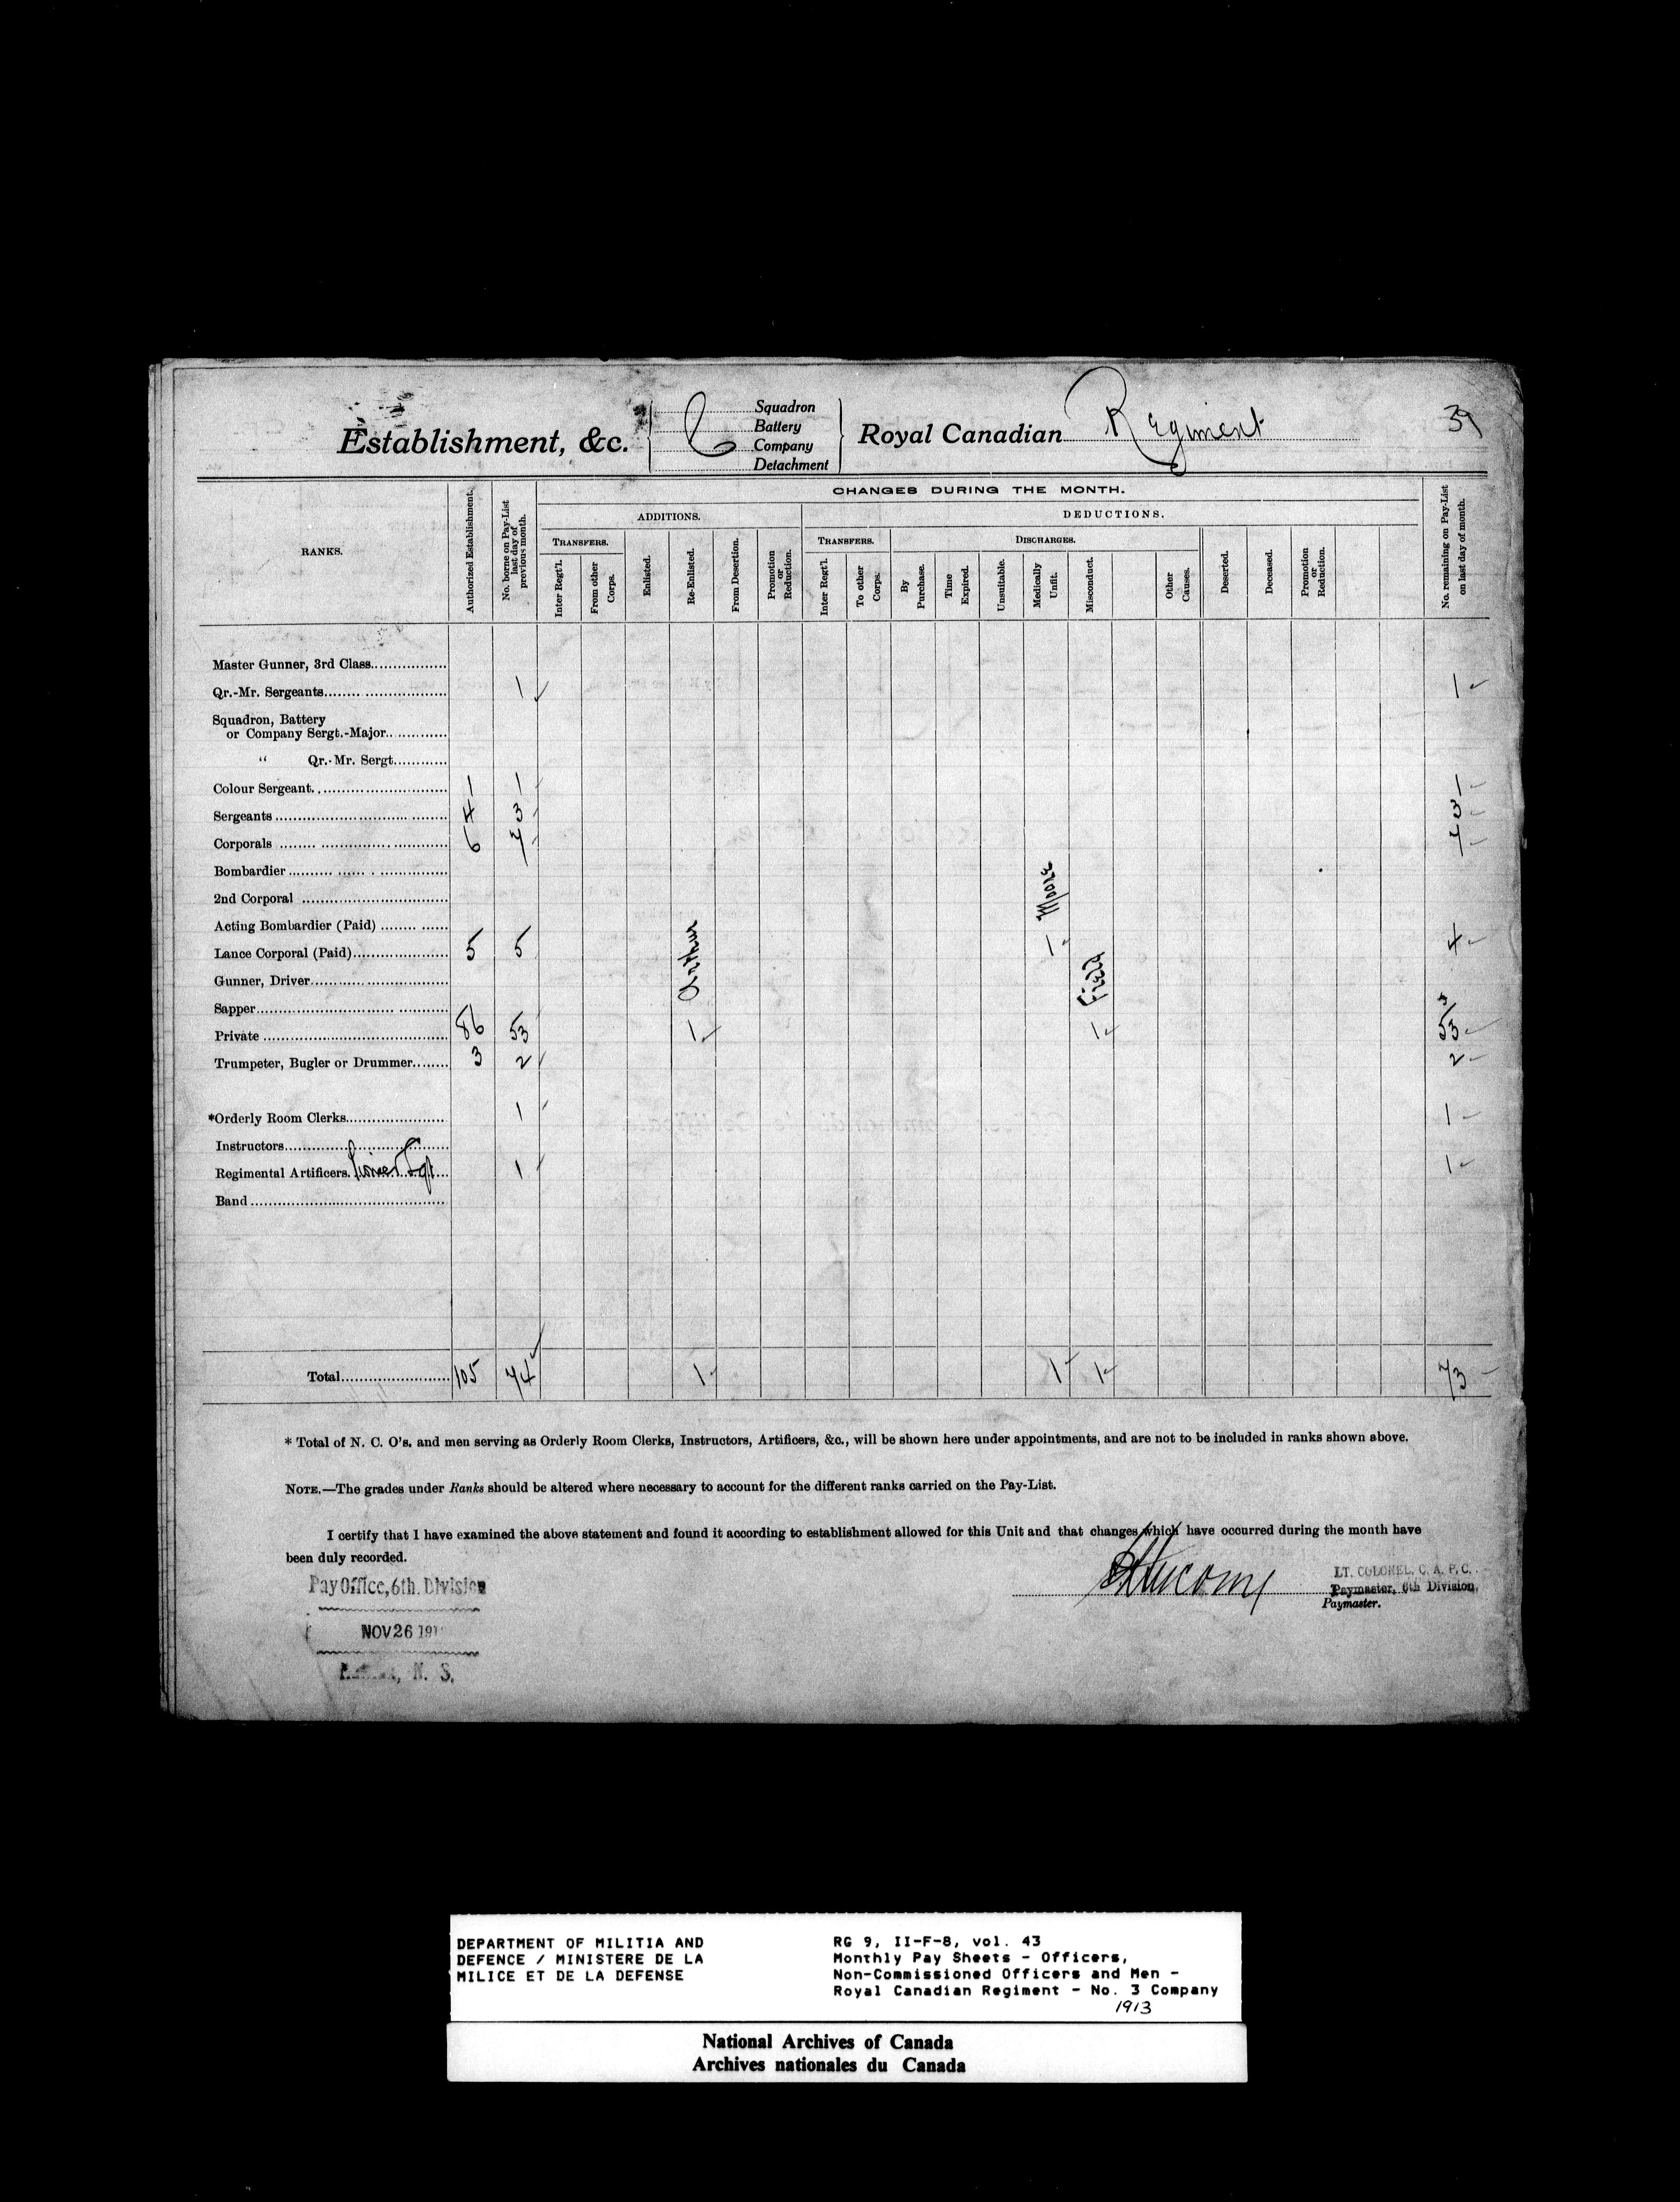 39
Squadron
Battery
Establishment, &c. C Company Royal Canadian Regiment
Detachment
CHANGES DURING THE MONTH.
ADDITIONS. DEDUCTIONS.
TRANSFERS. TRANSFERS. DISCHARGES.
RANKS. Authorized Establishment. No. borne on Pay-List last day of previous month. Inter Regt'l. From other Corps. Enlisted. Re-Enlisted. From Desertion. Promotion or Reduction. Inter Regt'l. To other Corps. By Purchase. Time Expired. Unsuitable. Medically Unfit. Misconduct. Other Causes. Deserted. Deceased. Promotion or Reduction. No. remaining on Pay-List on last day of month.
Master Gunner, 3rd Class
Qr.-Mr. Sergeants 1 1
Squadron, Battery
or Company Sergt.-Major
" Qr.-Mr. Sergt
Colour Sergeant 1 1 1
Sergeants 4 3 3
Corporals 6 7 7
Bombardier
2nd Corporal
Moore
Acting Bombardier (Paid)
Lance Corporal (Paid) 5 5 1 4
Arthur Field
Gunner, Driver
Sapper
Private 86 53 1 1 53
Trumpeter, Bugler or Drummer 3 2 2
*Orderly Room Clerks 1 1
Instructors
Regimental Artificers. 1 1
Band
Total 105 74 1 1 1 73
* Total of N. C. O's. and men serving as Orderly Room Clerks, Instructors, Artificers, &c., will be shown here under appointments, and are not to be included in ranks shown above.
NOTE.—The grades under Ranks should be altered where necessary to account for the different ranks carried on the Pay-List.
I certify that I have examined the above statement and found it according to establishment allowed for this Unit and that changes which have occurred during the month have
been duly recorded.
Pay Office, 6th. Division
NOV 26 191
N. S.
LT. COLONEL, C. A. P. C.
Paymaster, 6th Division,
Paymaster.
DEPARTMENT OF MILITIA AND
DEFENCE / MINISTERE DE LA
MILICE ET DE LA DEFENSE
RG 9, II-F-8, vol. 43
Monthly Pay Sheets - Officers,
Non-Commissioned Officers and Men -
Royal Canadian Regiment - No. 3 Company
1913
National Archives of Canada
Archives nationales du Canada